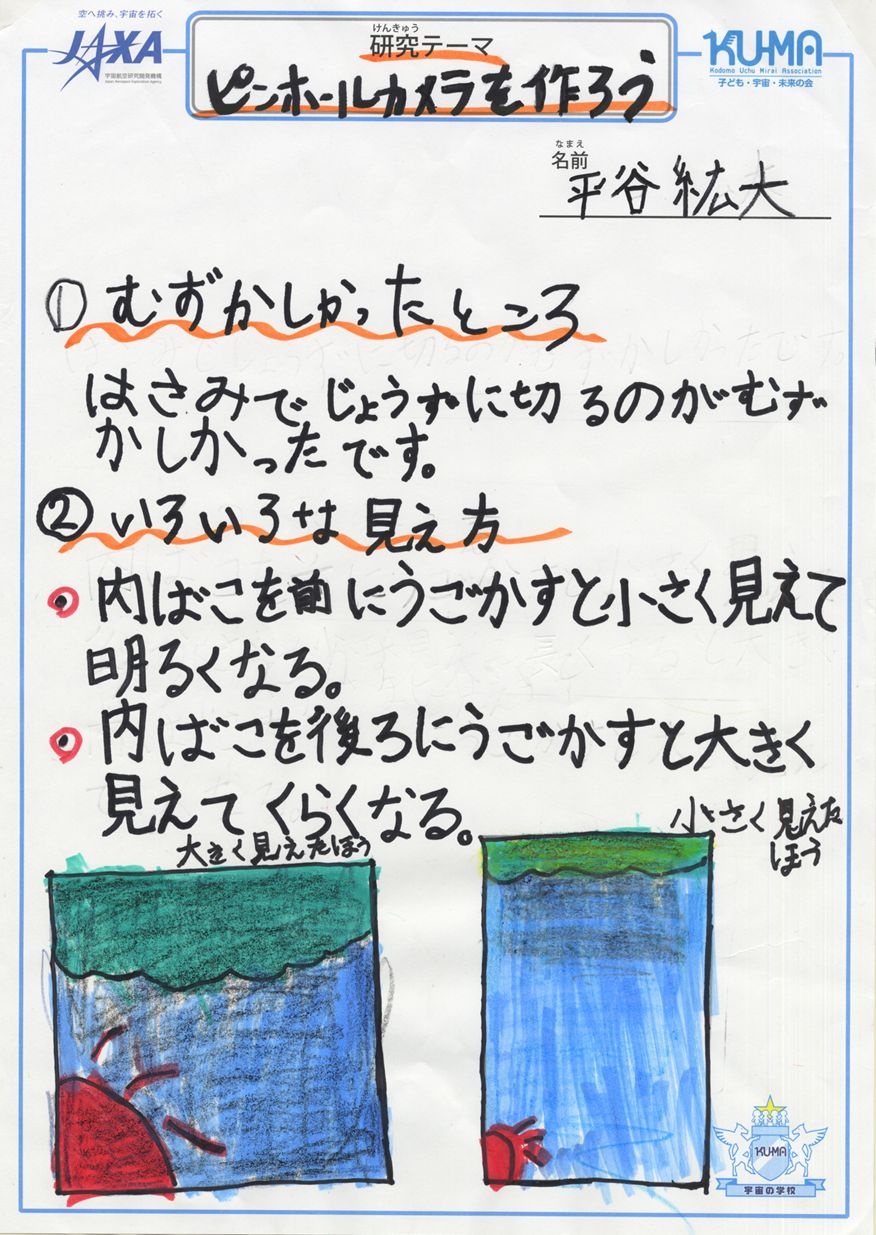 空へ挑み、宇宙を拓く
JAXA
宇宙航空研究開発機構
Japan Aerospace Exploration Agency
けんきゅう
研究テーマ
ピンホールカメラを作ろう
KU-MA
Kodomo Uchu Mirai Association
子ども・宇宙・未来の会
なまえ
名前
平谷紘大
① むずかしかったところ
はさみでじょうずに切るのがむず
かしかったです。
② いろいろな見え方
内ばこを前にうごかすと小さく見えて
明るくなる。
内ばこを後ろにうごかすと大きく
見えてくらくなる。
大きく見えたほう
小さく見えた
ほう
KU-MA
宇宙の学校